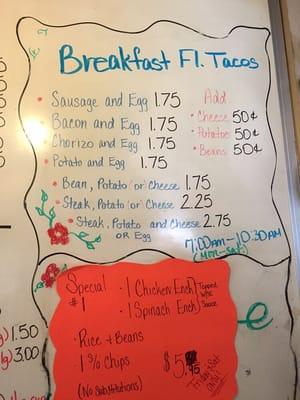 Breakfast Fl. Tacos
Sausage and Egg 1.75
Bacon and Egg 1.75
Chorizo and Egg 1.75
Potato and Egg 1.75
Add
Cheese 50¢
Potatoe 50¢
Beans 50¢
Bean, Potato (or) Cheese 1.75
Steak, Potato (or) Cheese 2.25
Steak, Potato and Cheese 2.75
OR Egg
7:00AM-10:30AM
(Mon-Sat)
Special
#1
1 Chicken Ench
1 Spinach Ench
Topped
Sauce
Rice + Beans
1 % Chips
(No Substitutions)
$5.95
1.50
3.00